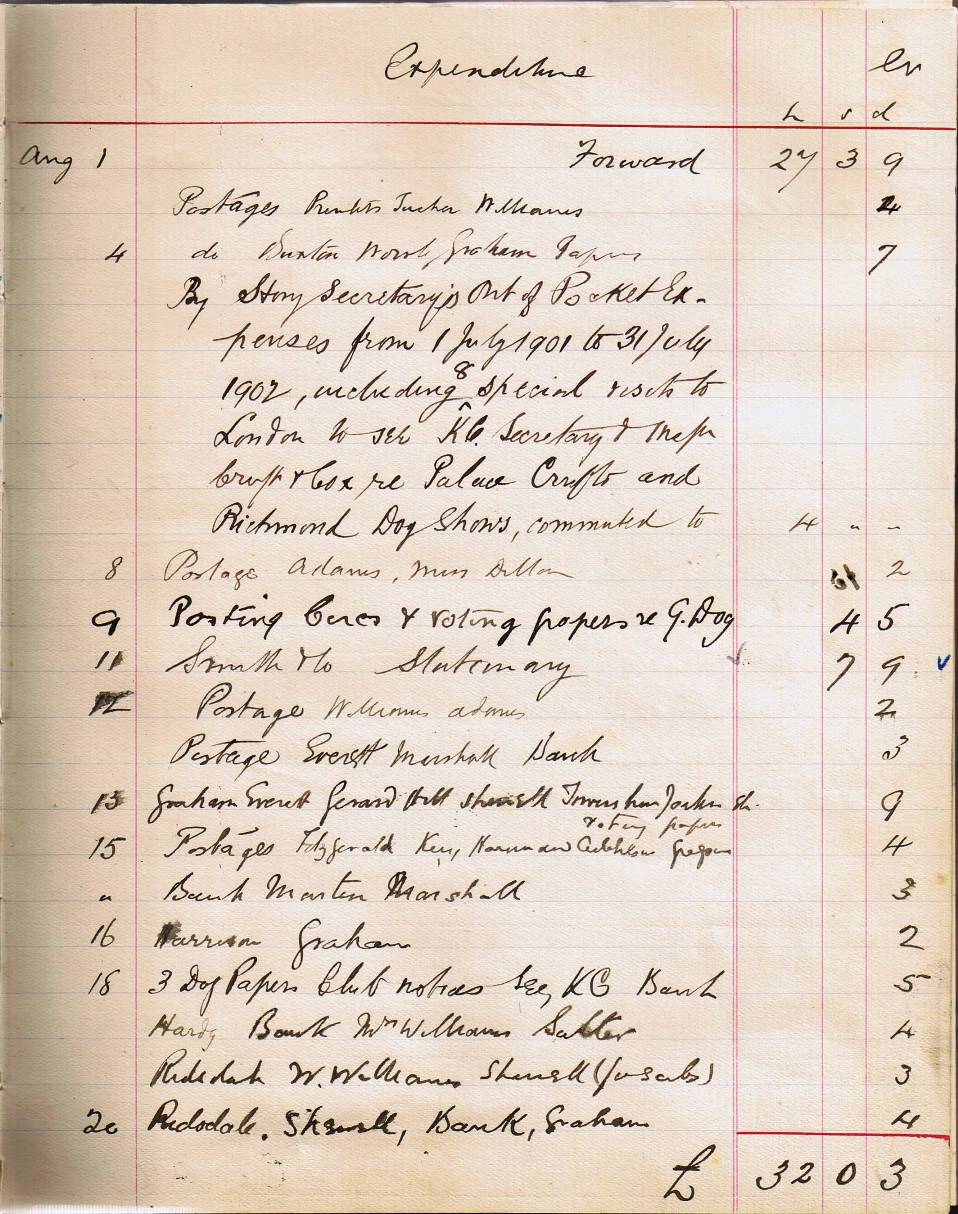 Expenditure Cr
£ s d
Aug 1 Forward 27 3 9
Postages Printers Tucker Williams 4
4 do Buxton Graham Papers 7
By Story Secretary's Out of Pocket Ex-
penses from 1 July 1901 to 31 July
1902, including 8 special visits to
London to see KC. Secretary &
Cruft & Cox re Palace Crufts and
Richmond Dog Shows, commuted to 4 " "
8 Postage Adams, Miss Dillon 2
9 Posting Circs & voting papers re G. Dog 4 5
11 Smith & Co Stationary 7 9
12 Postage Williams Adams 2
Postage Everett Marshall Bank 3
13 Graham Everett Gerard Hill Shewell 9
voting papers
15 Postages Fitzgerald 4
" Bank Martin Marshall 3
16 Harrison Graham 2
18 3 Dog Papers Club notices Sec, KC Bank 5
Hardy Bank Mrs Williams Salter 4
Ridsdale W. Williams Shewell (for subs) 3
20 Ridsdale. Shewell, Bank, Graham 4
£ 32 0 3